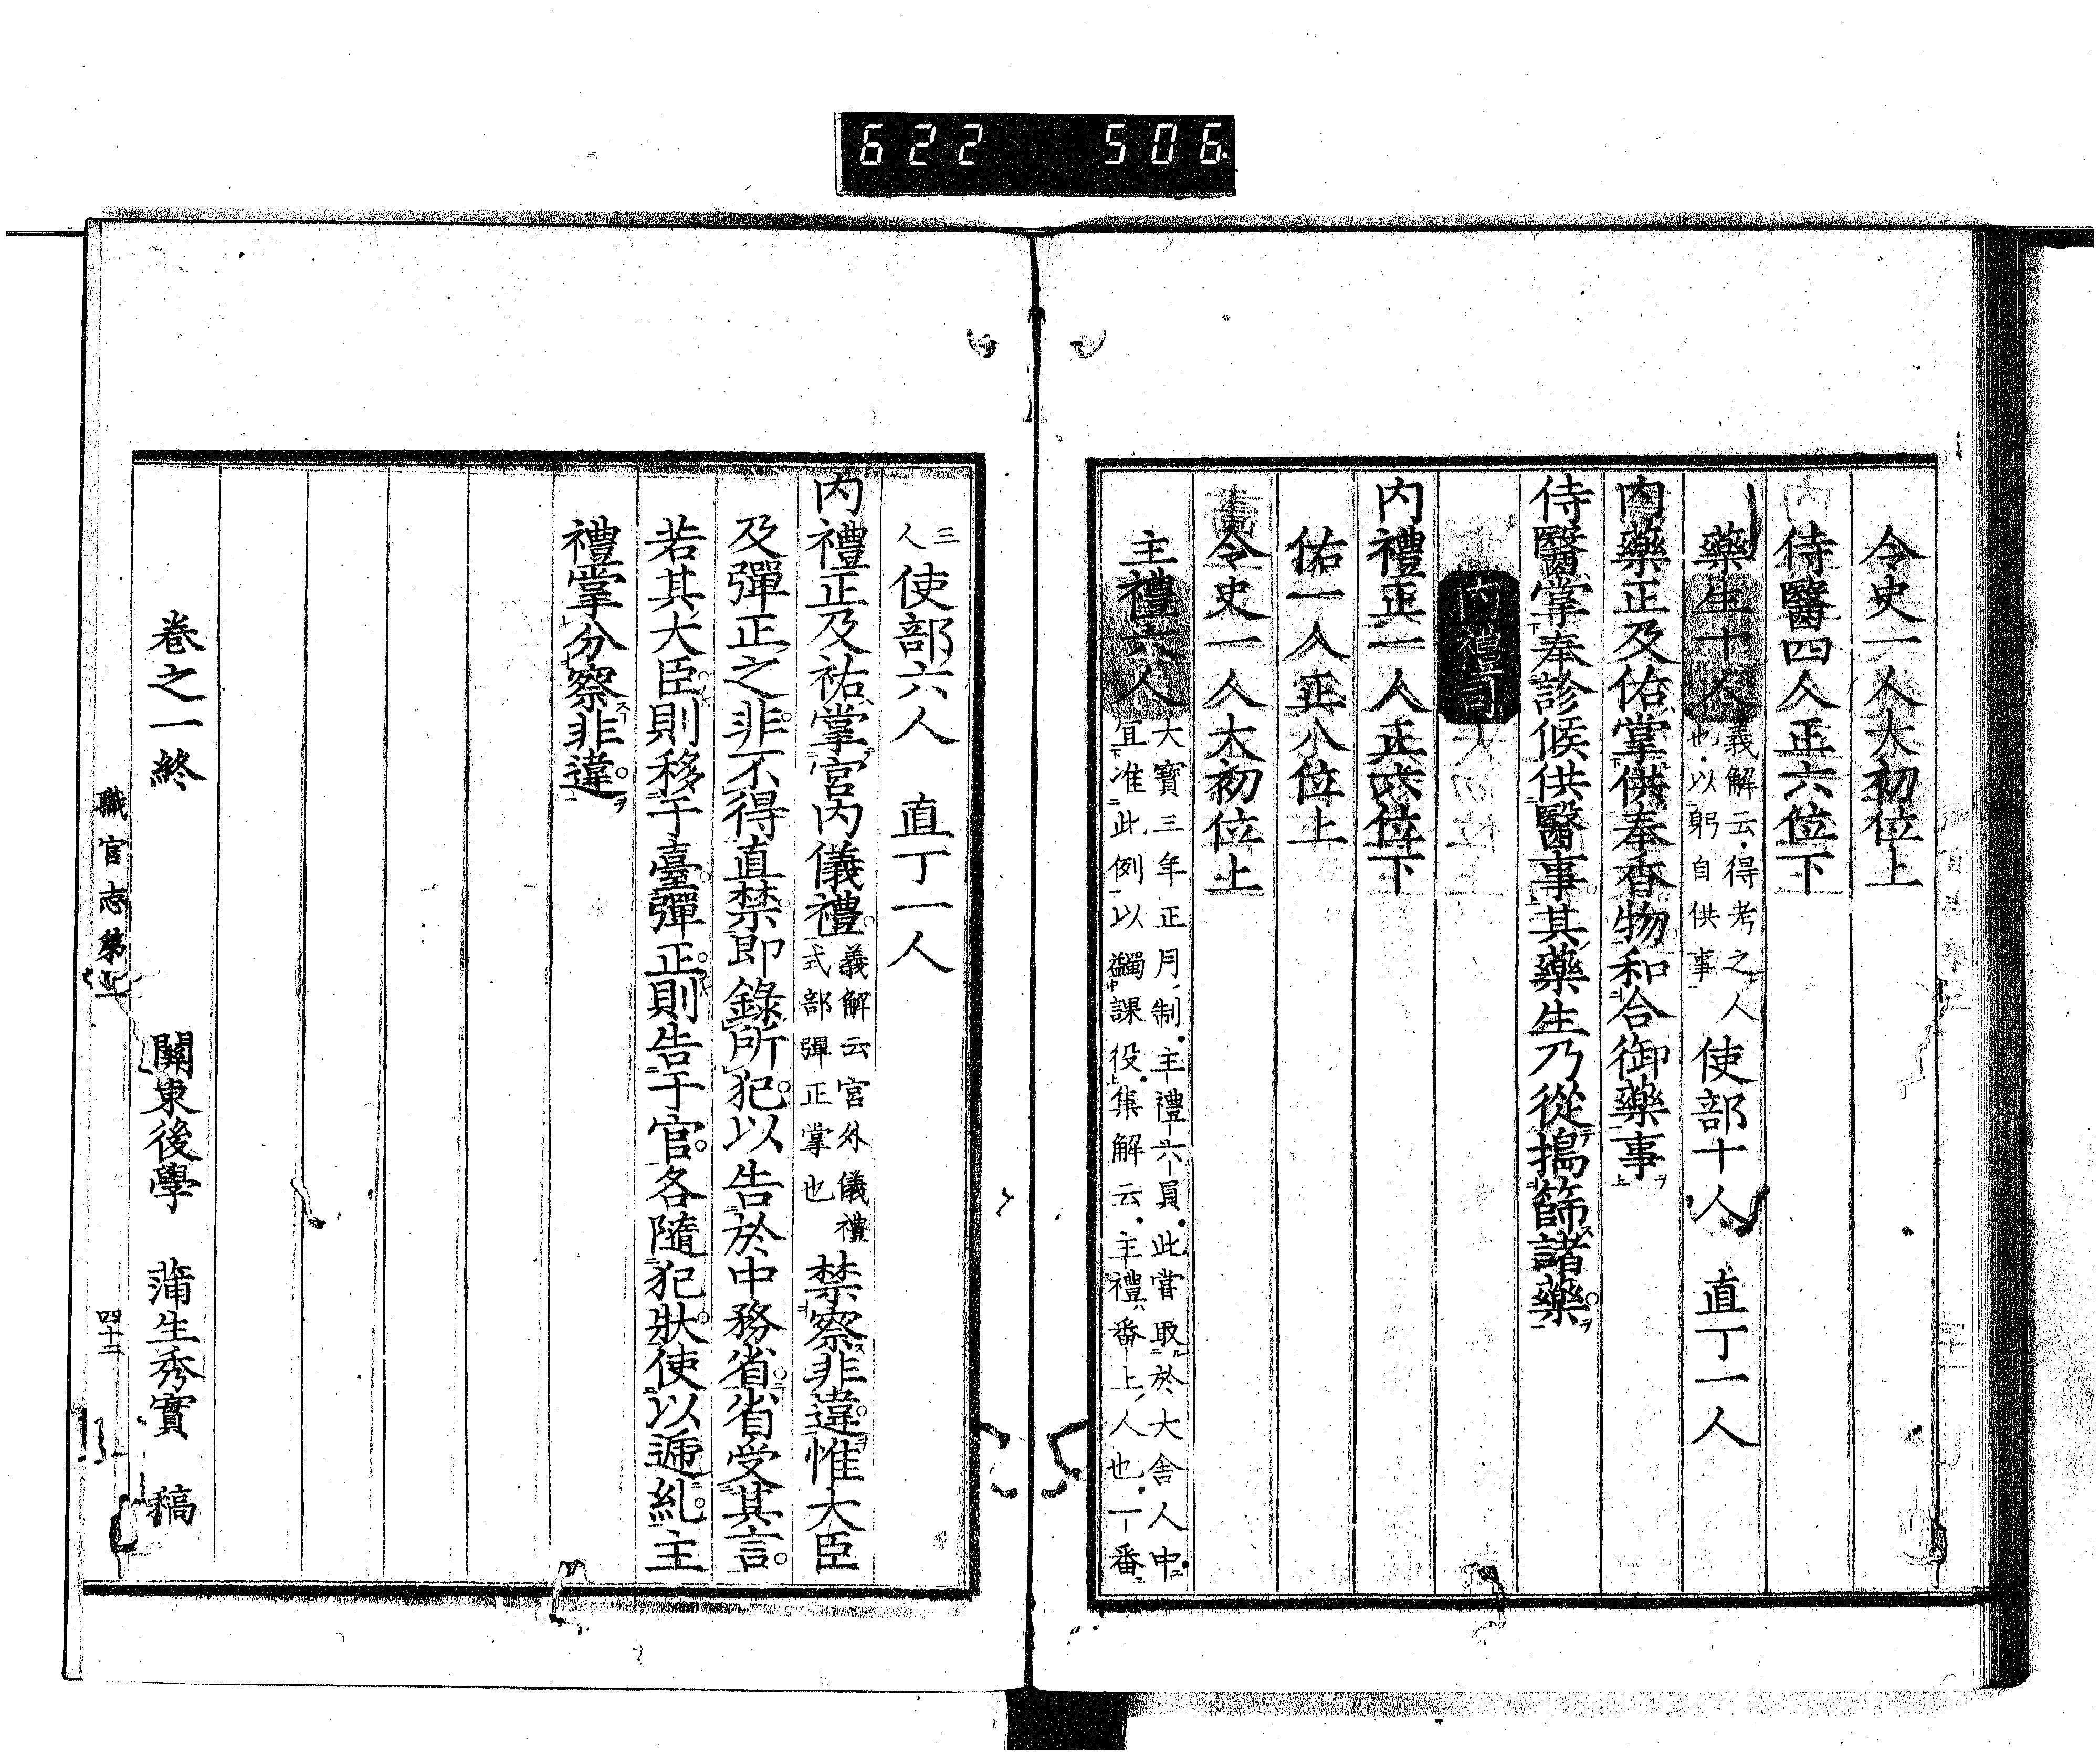 622 506
令史一人大初位上
侍醫四人正六位下
藥生十人義解云得考之人也以躬自供事使部十人 直丁一人
內藥正及佑掌供奉香物和合御藥事
侍醫掌奉診候供醫事其藥生乃從搗篩諸藥
內禮司
內禮正一人正六位下
佑一人正八位上
令史一人大初位上
主禮六人大寶三年正月制主禮六員此嘗取於大舍人中宜准此例以蠲課役集解云主禮六番上人也一番
三人使部六人 直丁一人
內禮正及祐掌宮內儀禮義解云宮外儀禮式部彈正掌也禁察非違惟大臣
及彈正之非不得直禁卽錄所犯以告於中務省省受其言
若其大臣則移于臺彈正則告于官各隨犯狀使以遞糺主
禮掌分察非違
卷之一終 關東後學 蒲生秀實 稿
職官志第一 四十三